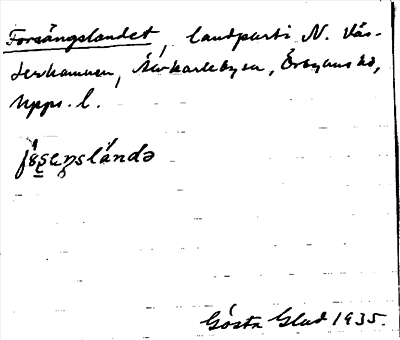 Forsängslandet, landparti N. Väs-
terhamnen, Älvkarleby sn, Örbyhus hd,
Upps. l.
Gösta Glad 1935.